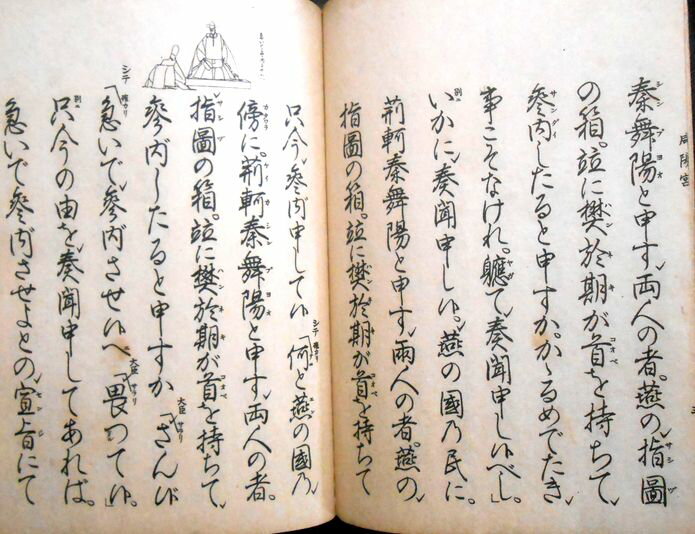 咸陽宮
秦舞陽と申す。両人の者。燕の指圖
の箱。竝に樊於期が首を持ちて
參内したると申すか。かゝるめでたき
事こそなけれ。軈て奏聞申し候べし。」
いかに奏聞申し候。燕の國乃民に。
荊軻秦舞陽と申す。兩人の者。燕の
指圖の箱。竝に樊於期が首を持ちて
只今參内申して候 シテ「何と燕の國乃
傍に。荊軻秦舞陽と申す。両人の者。
指圖の箱。竝に樊於期が首を持ちて
參内したると申すか 大臣「さん候
シテ「急いで參内させ候へ 大臣「畏つて候。」
只今の由を奏聞申してあれば。
急いで參内させよとの宣旨にて